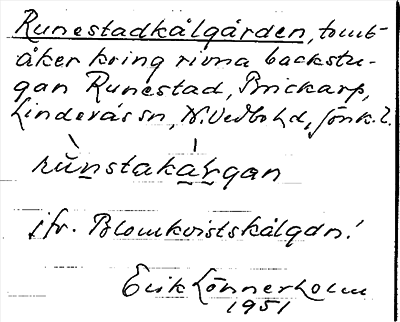 Runestadkålgården, tomt-
åker kring rivna backstu-
gan Runestad, Brickarp,
Linderås sn, N. Vedbo hd, Jönk. l.
rùnstakárgan
jfr. Blomkvistskålgdn!
Erik Lönnerholm
1951